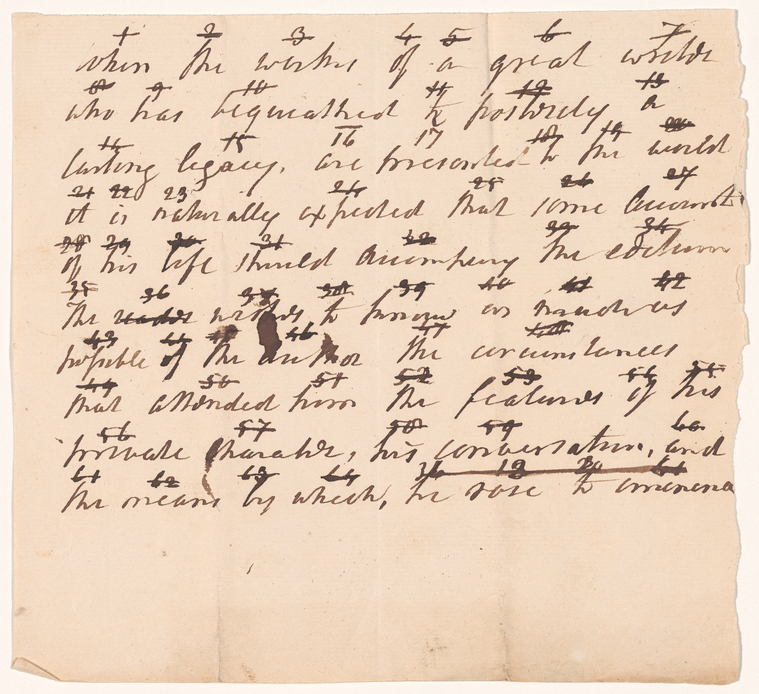 1 2 3 4 5 6 7
when the works of a great writer
8 9 10 11 12 13
who has bequeathed to posterity a
14 15 16 17 18 19 20
lasting legacy, are presented to the world
21 22 23 24 25 26 27
it is naturally expected that some account
28 29 30 31 32 33 34
of his life should accompany the edition
35 36 37 38 39 40 41 42
The reader wishes to know as much as
43 44 46 47 48
possible of the author the circumstances
49 50 51 52 53 54 55
that attended him the features of his
56 57 58 59 60
private character, his conversation, and
61 62 63 64
the means by which, he rose to eminence